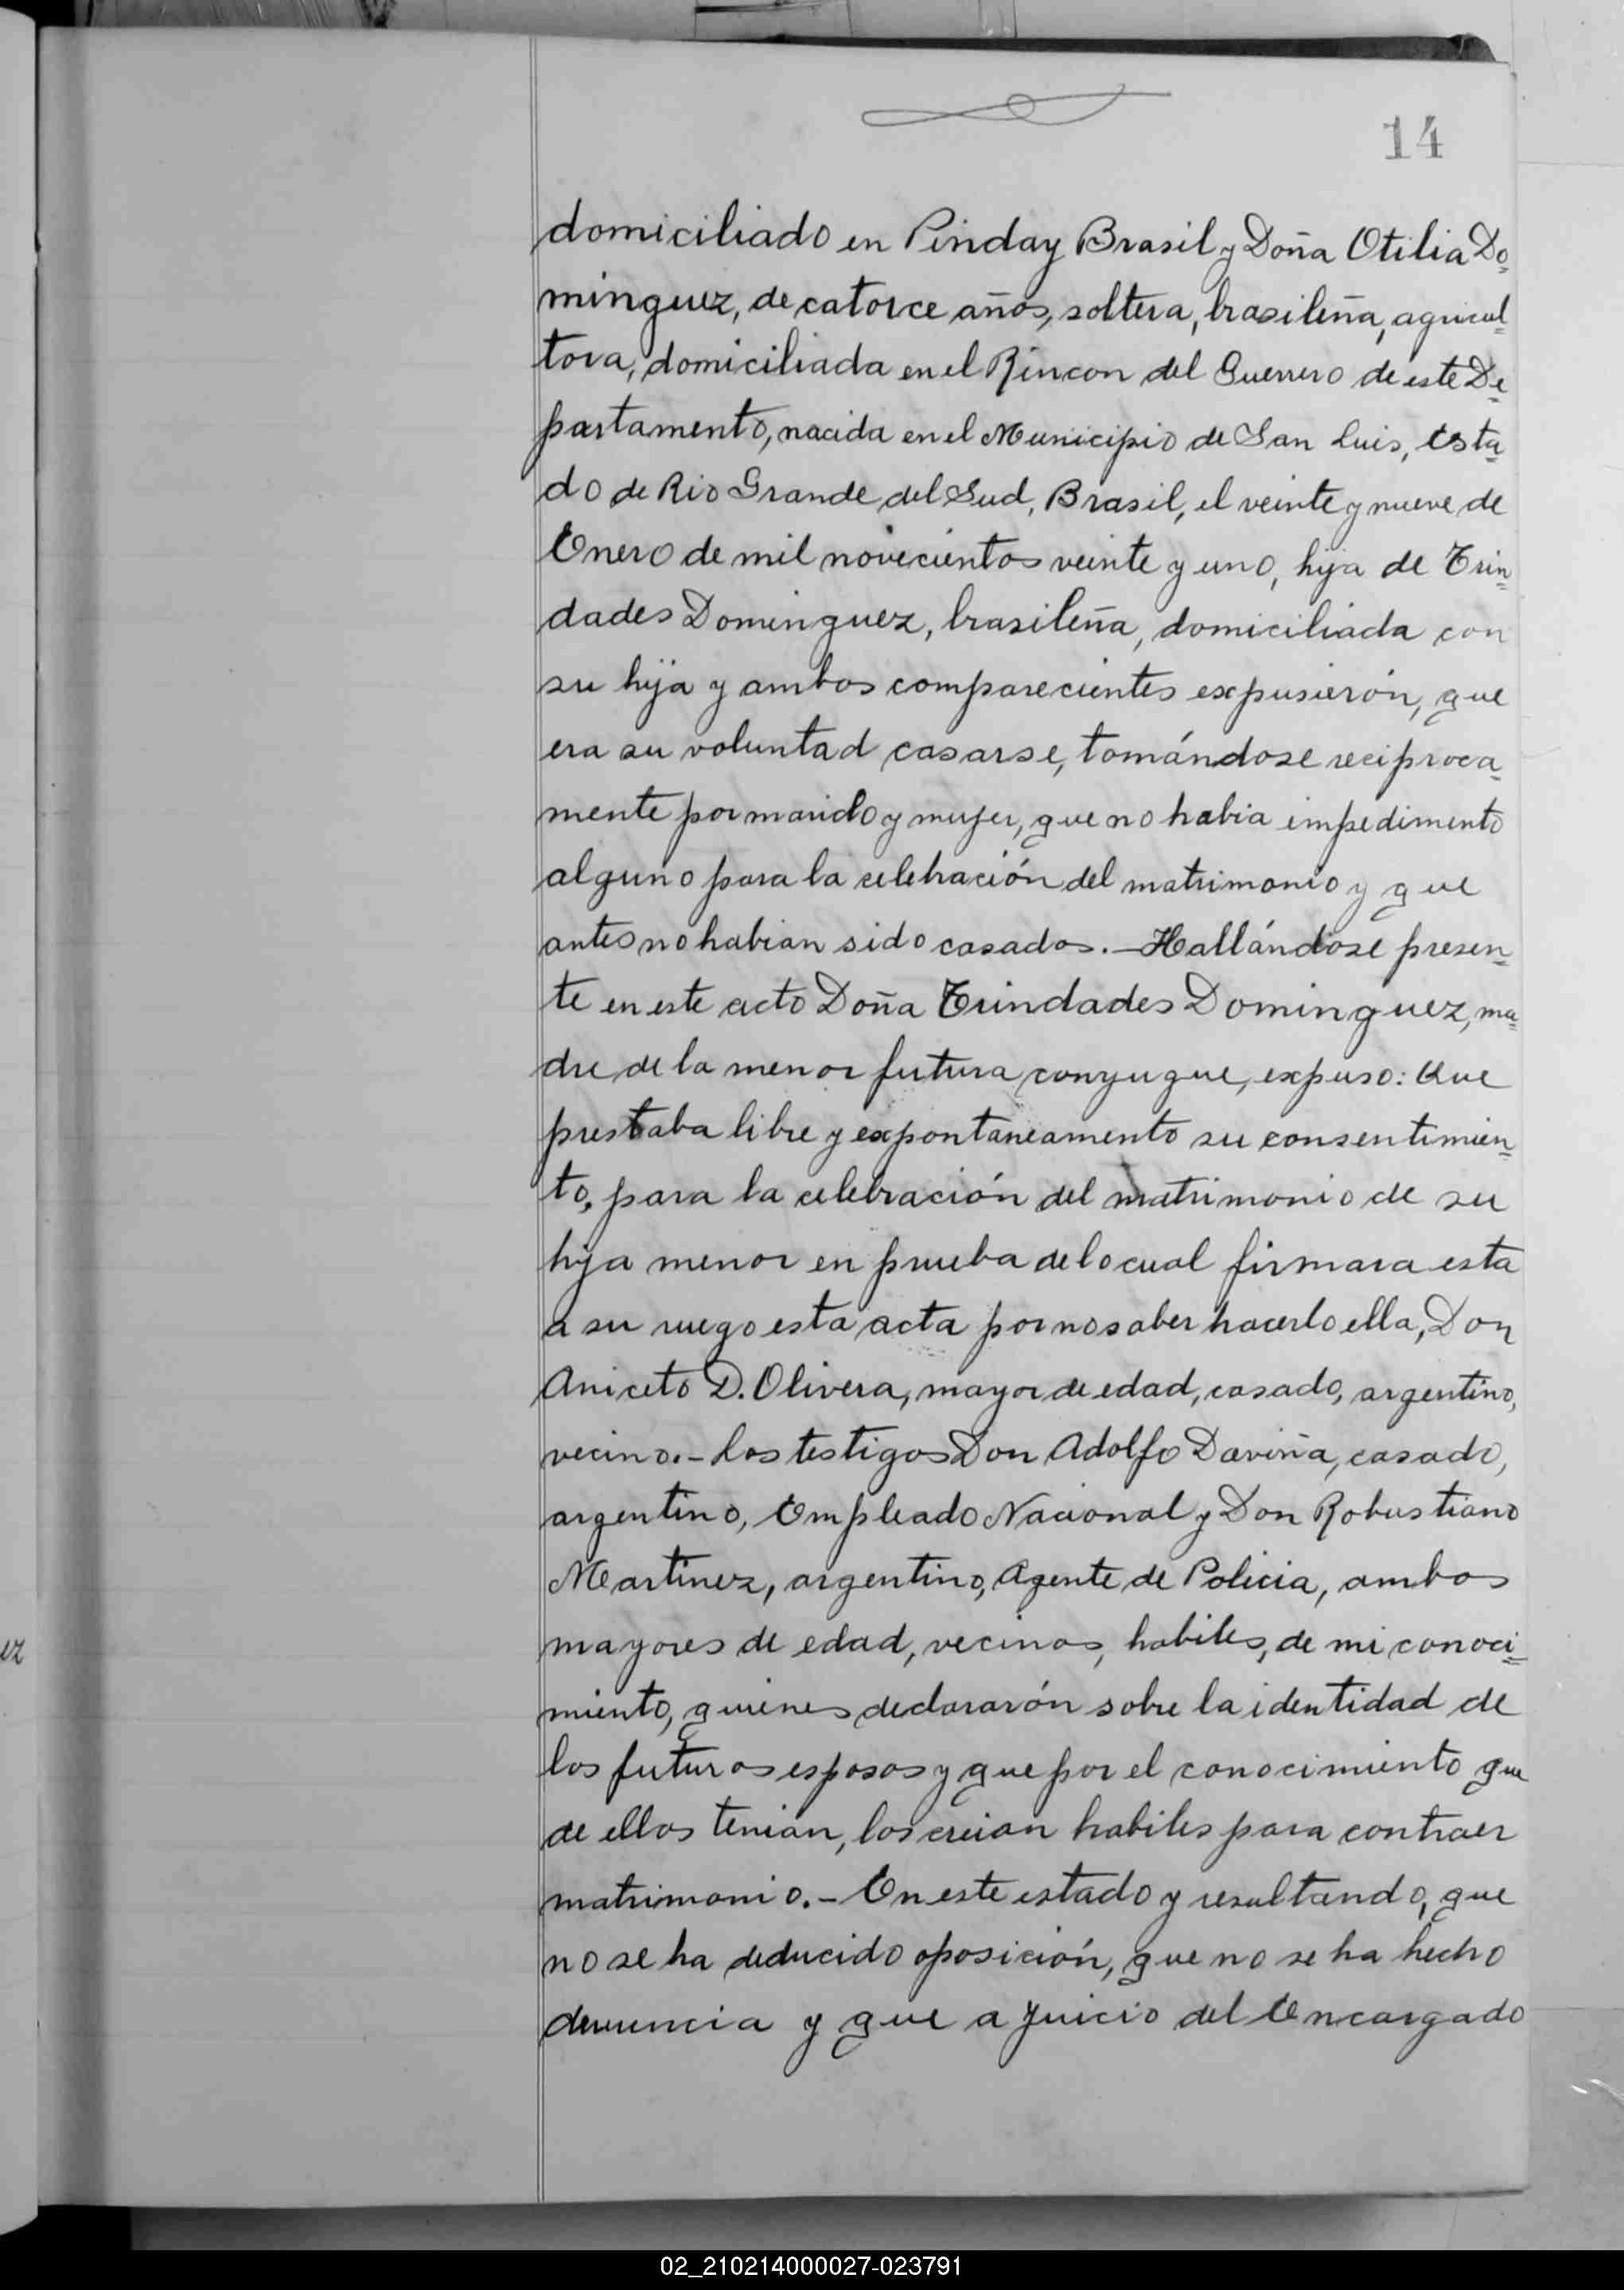 14
domiciliado en Pinday Brasil y Doña Otilia Do=
minguez, de catorce años, soltera, brasileña, agricul=
tora, domiciliada en el Rincon del Guerrero de este De=
partamento, nacida en el Municipio de San Luis, Esta=
do de Rio Grande del Sud, Brasil, el veinte y nueve de
Enero de mil novecientos veinte y uno, hija de Trin=
dades Dominguez, brasileña, domiciliada con
su hija y ambos comparecientes expusierón, que
era su voluntad casarse, tomándose reciproca=
mente por marido y mujer, que no habia impedimento
alguno para la celebración del matrimonio y que
antes no habian sido casados.—Hallándose presen=
te en este acto Doña Trindades Dominguez, ma=
dre de la menor futura conyugue, expuso: Que
prestaba libre y expontaneamento su consentimien=
to, para la celebración del matrimonio de su
hija menor en prueba de lo cual firmara esta
a su ruego esta acta por no saber hacerlo ella, Don
Aniceto D. Olivera, mayor de edad, casado, argentino,
vecino.- Los testigos Don Adolfo Daviña, casado,
argentino, Empleado Nacional y Don Robustiano
Martinez, argentino, Agente de Policia, ambos
mayores de edad, vecinos, habiles, de mi conoci=
miento, quienes declararón sobre la identidad de
los futuros esposos y que por el conocimiento que
de ellos tenian, los creian habiles para contraer
matrimonio.- En este estado y resultando, que
no se ha deducido oposición, que no se ha hecho
denuncia y que a juicio del Encargado
ez
02_210214000027-023791